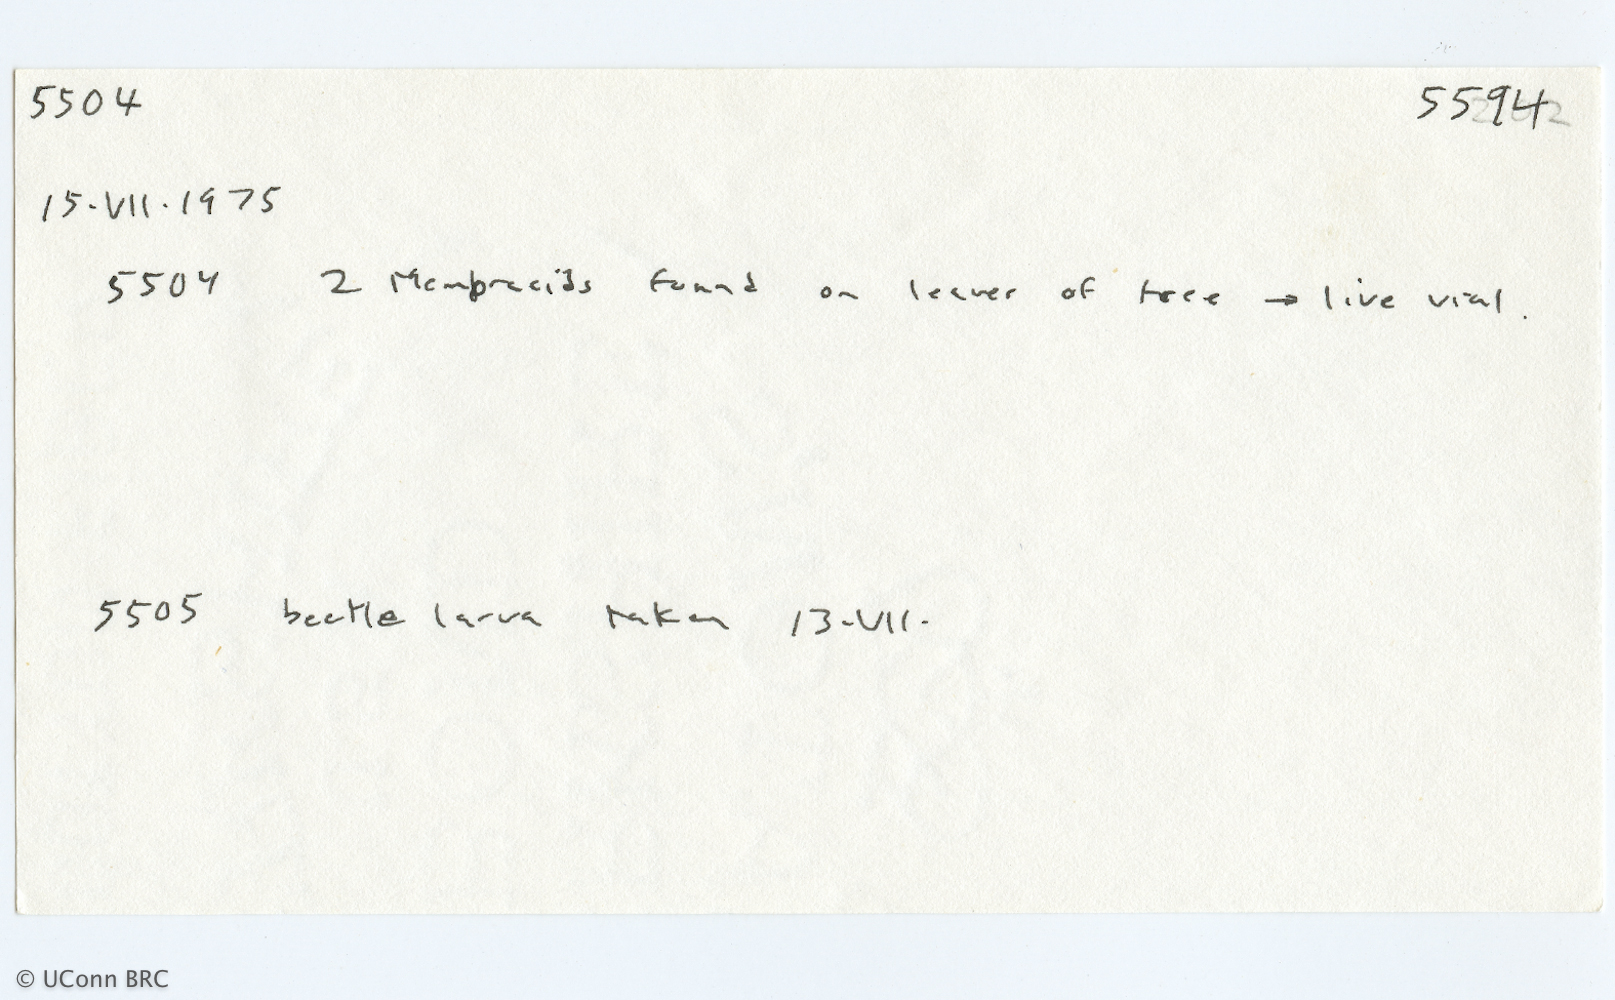 5504 5594
15-VII-1975
5504 2 Membracids found on leaves of tree → live vial.
5505 beetle larva taken 13-VII-
© UConn BRC